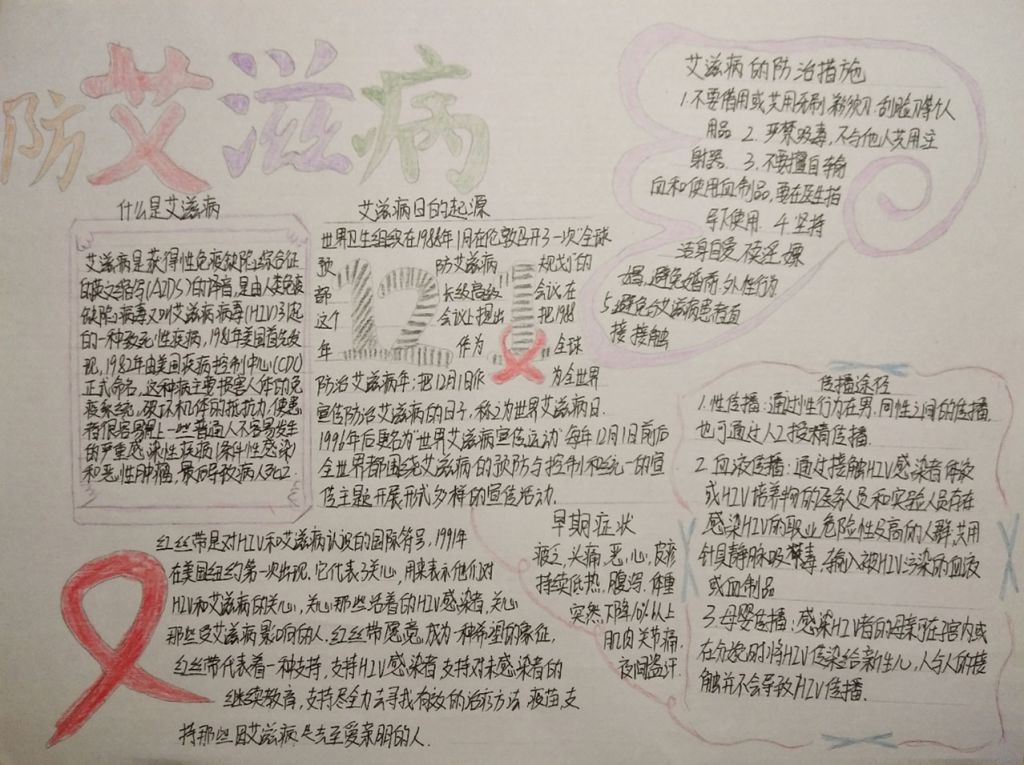 防艾滋病
什么是艾滋病
艾滋病是获得性免疫缺陷综合征
的英文缩写(AIDS)的译音,是由人类免疫
缺陷病毒又叫艾滋病病毒(HIV)引起
的一种致死性疾病,1981年美国首先发
现,1982年由美国疾病控制中心(CDC)
正式命名,这种病主要损害人体的免
疫系统,破坏机体的抵抗力,使患
者很容易得上一些普通人不容易发生
的严重感染性疾病(条件性感染)
和恶性肿瘤,最后导致病人死亡.
艾滋病日的起源
世界卫生组织在1988年1月在伦敦召开了一次"全球
预 防艾滋病 规划的
部 长级高级 会议在
这个 会议上提出 把1988
年 作为 全球
12 1
防治艾滋病年:把12月1日作 为全世界
宣传防治艾滋病的日子,称之为世界艾滋病日.
1996年后更名为"世界艾滋病宣传运动"每年12月1日前后
全世界都围绕艾滋病的预防与控制和统一的宣
传主题开展形式多样的宣传活动.
艾滋病的防治措施
1.不要借用或共用牙刷 剃须刀 刮脸刀等个人
用品 2.严禁吸毒,不与他人共用注
射器 3.不要擅自输
血和使用血制品,要在医生指
导下使用 4.坚持
洁身自爱,
婚,避免婚前.外性行为
5.避免与艾滋病患者血
接接触
传播途径
1.性传播:通过性行为在男.同性之间的传播
也可通过人工授精传播.
2.血液传播:通过接触HIV感染者体液
或HIV培养物的医务人员和实验人员存在
感染HIV的职业危险性及高的人群,共用
针具静脉吸毒,输入被HIV污染的血液
或血制品
3.母婴传播:感染HIV者的母亲可在子宫内或
在分娩时将HIV传染给新生儿,人与人的接
触并不会导致HIV传播.
早期症状
疲乏,头痛,恶心,皮疹
持续低热.腹泻.体重
突然下降10%以上
肌肉关节痛.
夜间盗汗.
红丝带是对HIV和艾滋病认识的国际符号,1991年
在美国纽约第一次出现.它代表了关心,用来表示他们对
HIV和艾滋病的关心,关心那些活着的HIV感染者,关心
那些受艾滋病影响的人,红丝带愿意成为一种希望的象征,
红丝带代表着一种支持,支持HIV感染者支持对未感染者的
继续教育,支持尽全力去寻找有效的治疗方法 疫苗,支
持那些因艾滋病 失去至爱亲朋的人.